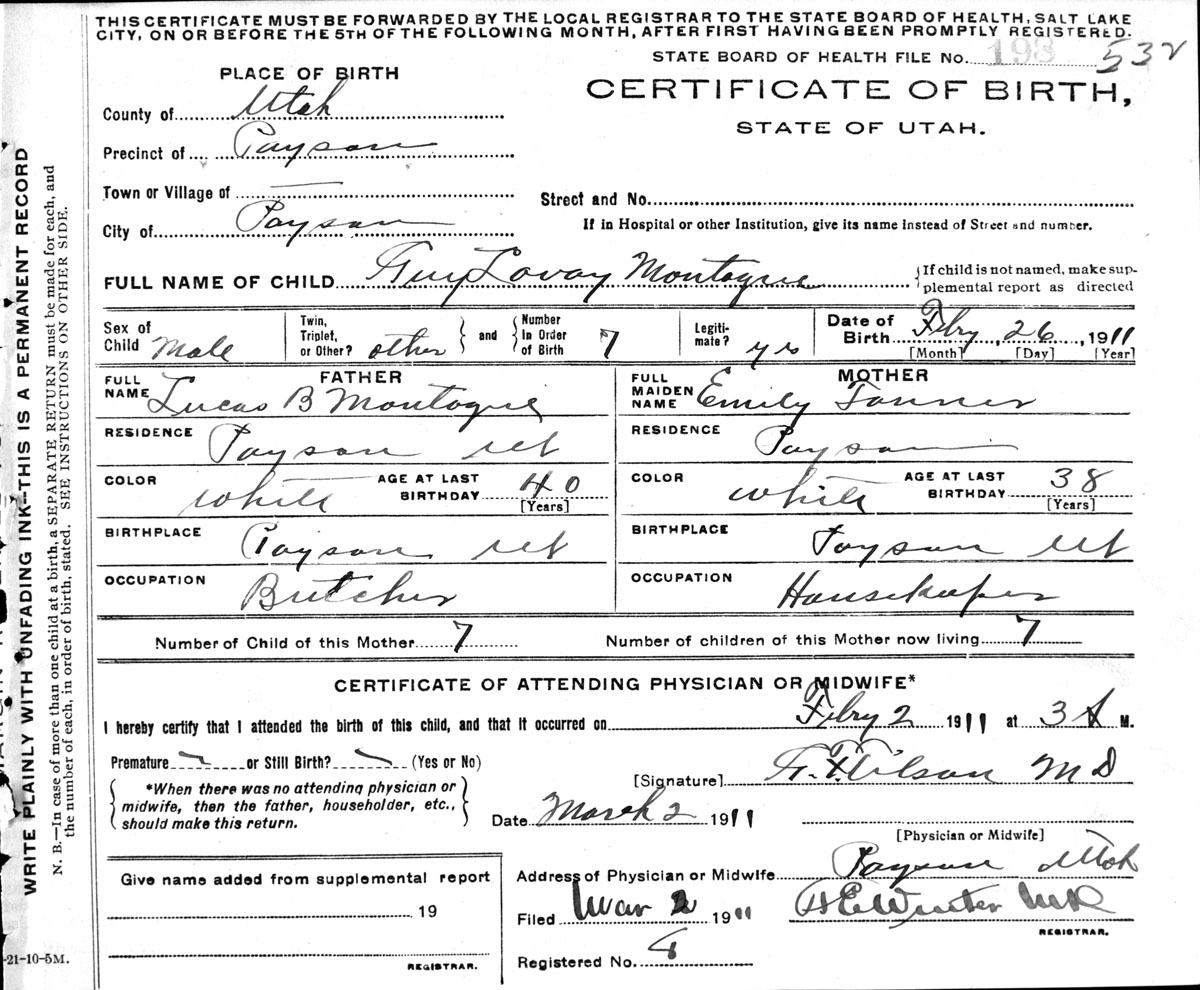 THIS CERTIFICATE MUST BE FORWARDED BY THE LOCAL REGISTRAR TO THE STATE BOARD OF HEALTH, SALT LAKE
CITY, ON OR BEFORE THE 5TH OF THE FOLLOWING MONTH, AFTER FIRST HAVING BEEN PROMPTLY REGISTERED.
STATE BOARD OF HEALTH FILE NO. 193 532
PLACE OF BIRTH
CERTIFICATE OF BIRTH,
STATE OF UTAH.
County of Utah
Precinct of Payson
Town or Village of
Street and No.
City of Payson
If in Hospital or other Institution, give its name instead of Street and number.
FULL NAME OF CHILD Guy Lovay Montague
{If child is not named, make sup-
plemental report as directed
Sex of Child Male
Twin, Triplet, or Other? other } and { Number In Order of Birth 7
Legiti-mate? yes
Date of Birth Febry 26, 1911
[Month] [Day] [Year]
FATHER
FULL NAME Lucas B Montague
MOTHER
FULL MAIDEN NAME Emily Tanner
RESIDENCE Payson Ut
RESIDENCE Payson
COLOR White AGE AT LAST BIRTHDAY 40 [Years]
COLOR White AGE AT LAST BIRTHDAY 38 [Years]
BIRTHPLACE Payson Ut
BIRTHPLACE Payson Ut
OCCUPATION Butcher
OCCUPATION Housekeeper
Number of Child of this Mother 7 Number of children of this Mother now living 7
CERTIFICATE OF ATTENDING PHYSICIAN OR MIDWIFE*
I hereby certify that I attended the birth of this child, and that it occurred on Febry 2 1911 at 3 A M.
Premature or Still Birth? (Yes or No)
[Signature] MD
{ *When there was no attending physician or
midwife, then the father, householder, etc.,
should make this return. }
Date March 2 1911
[Physician or Midwife]
Address of Physician or Midwife Payson Utah
Give name added from supplemental report
19
REGISTRAR.
Filed Mar 2 1911 H E Winter
REGISTRAR.
Registered No. 8
WRITE PLAINLY WITH UNFADING INK--THIS IS A PERMANENT RECORD
N. B.—In case of more than one child at a birth, a SEPARATE RETURN must be made for each, and
the number of each, in order of birth, stated. SEE INSTRUCTIONS ON OTHER SIDE.
-21-10-5M.